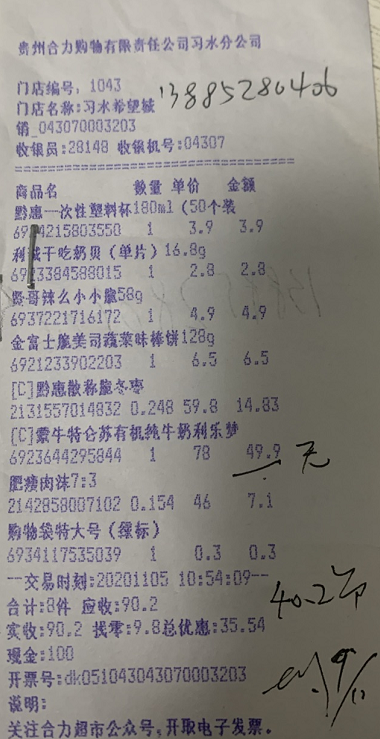 贵州合力购物有限责任公司习水分公司
门店编号: 1043
13885280406
门店名称:习水希望城
销_043070003203
收银员:28148 收银机号:04307
商品名 数量 单价 金额
黔惠一次性塑料杯180ml (50个装
6924215803550 1 3.9 3.9
利诚干吃奶贝 (单片) 16.8g
6923384588015 1 2.8 2.8
贤哥辣么小小脆58g
6937221716172 1 4.9 4.9
金富士脆美司蔬菜味棒饼128g
6921233902203 1 6.5 6.5
[C]黔惠散称脆冬枣
2131557014832 0.248 59.8 14.83
[C]蒙牛特仑苏有机纯牛奶利乐梦
6923644295844 1 78 49.9 无
肥瘦肉沫7:3
2142858007102 0.154 46 7.1
购物袋特大号 (绿标)
6934117535039 1 0.3 0.3
--交易时刻:20201105 10:54:09--
合计:8件 应收:90.2
40.2
实收:90.2 找零:9.8总优惠:35.54
现金:100
开票号:dk051043043070003203
说明:
9/11
关注合力超市公众号,开取电子发票。